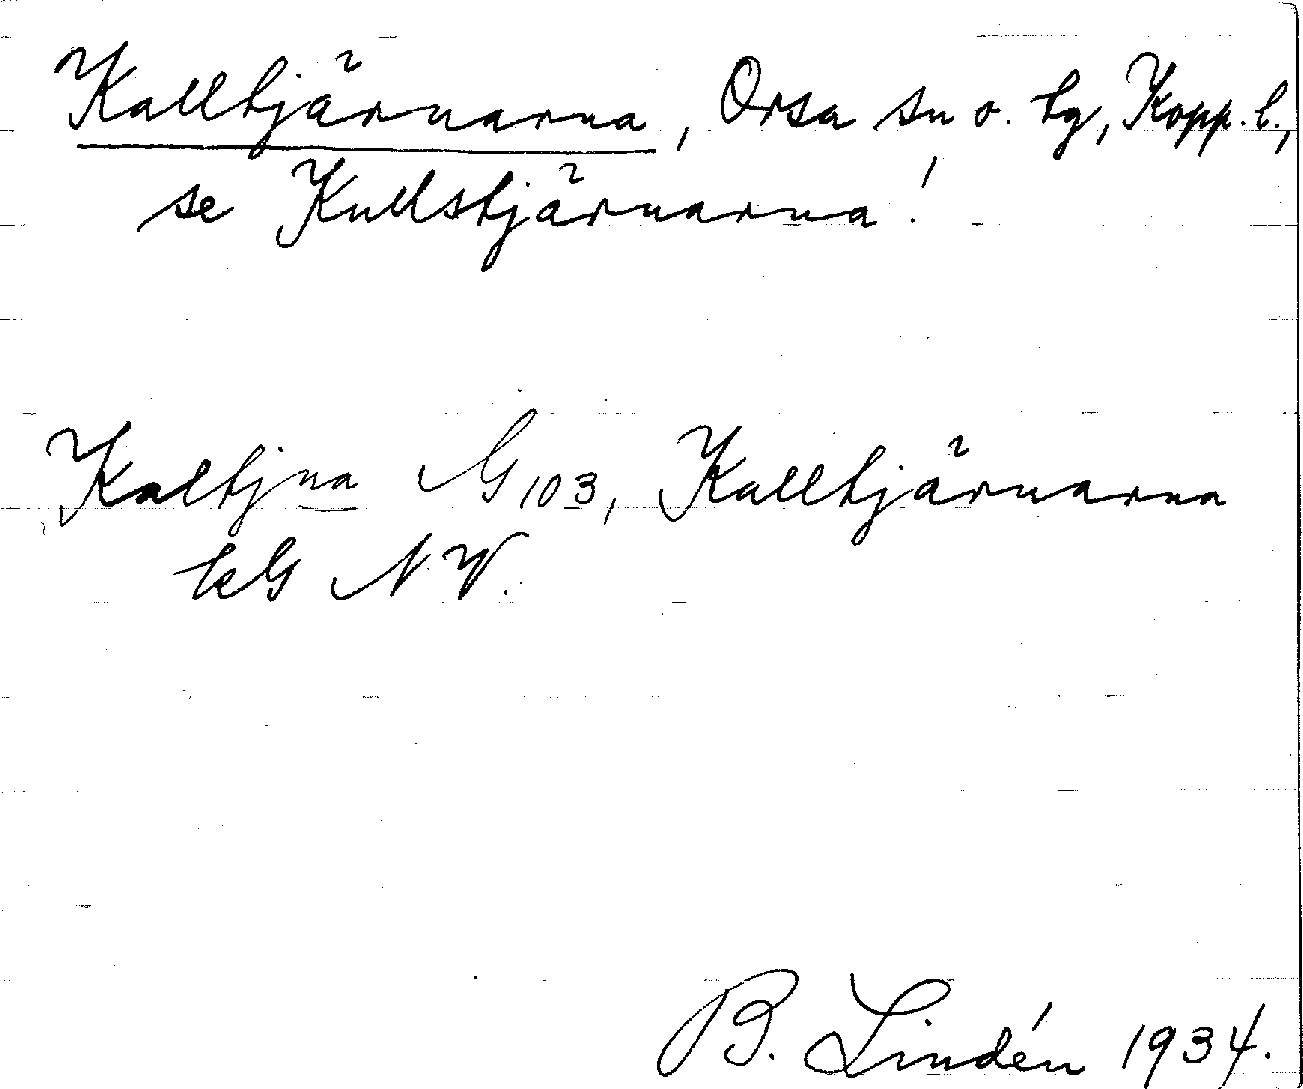 Kalltjärnarna, Orsa sn o. tg, Kopp. l.,
se Kullstjärnarna!
Kaltjna G103, Kalltjärnarna
kG NV.
B. Lindén 1934.